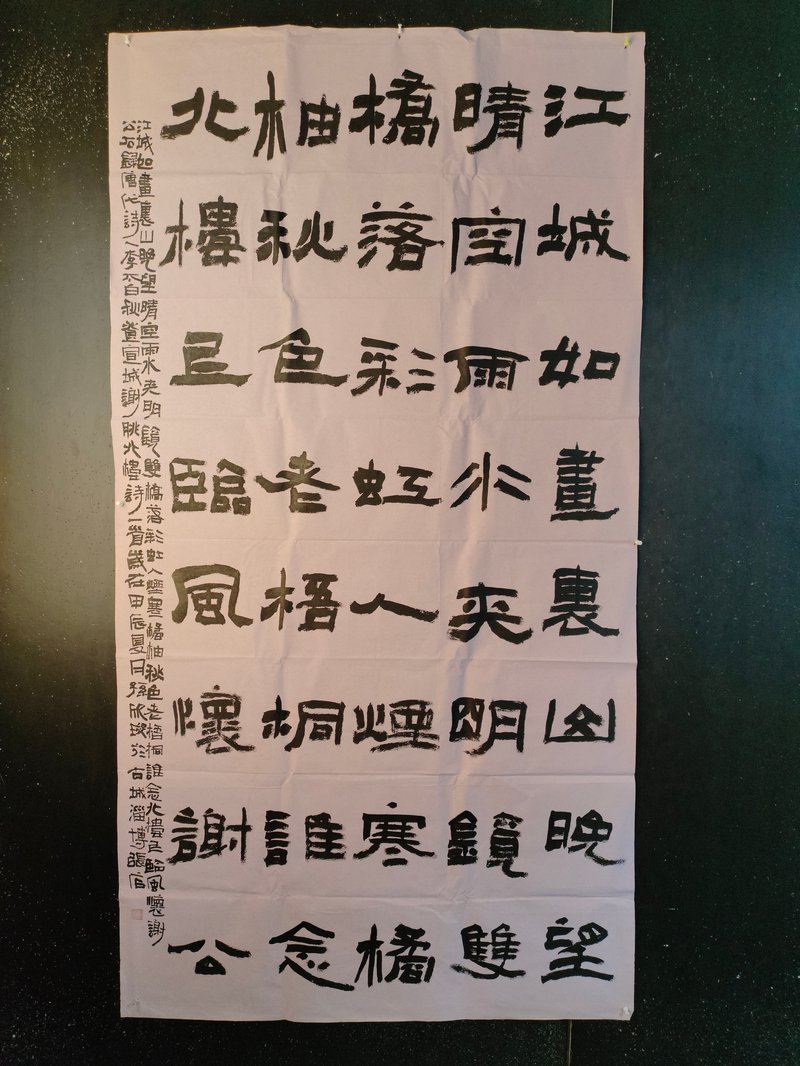 江城如畫裏山晚望
晴空雨水夾明鏡雙
橋落彩虹人煙寒橘
柚秋色老梧桐誰念
北樓已臨風懷謝公
江城如畫裏山晚望晴空雨水夾明鏡雙橋落彩虹人煙寒橘柚秋色老梧桐誰念北樓已臨風懷謝
公右錄唐代詩人李太白秋登宣城謝朓北樓詩一首歲在甲辰夏月孫欣於古城淄博張店